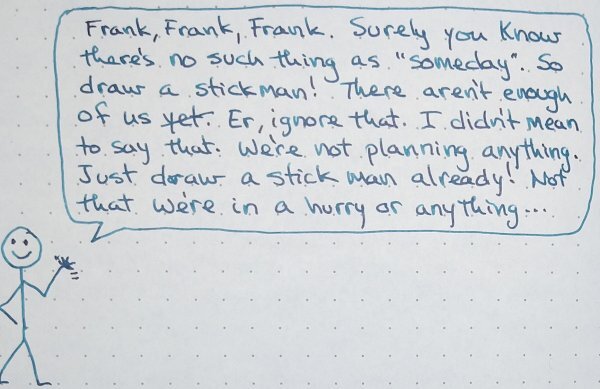 Frank, Frank, Frank. Surely you know
there's no such thing as "someday". So
draw a stickman! There aren't enough
of us yet. Er, ignore that. I didn't mean
to say that. We're not planning anything.
Just draw a stick man already! Not
that we're in a hurry or anything...